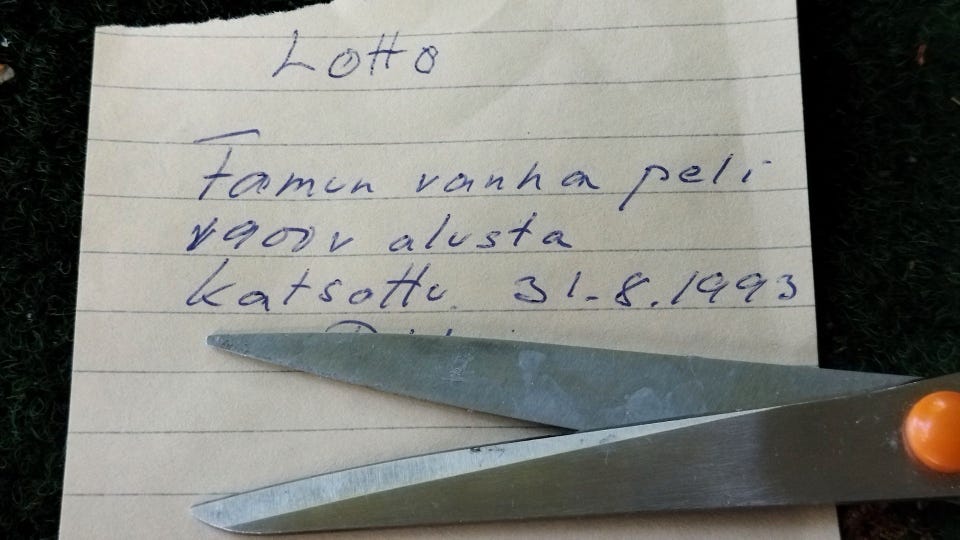 Lotto
Tämän vanha peli
alusta
Katsottu 31.8.1993